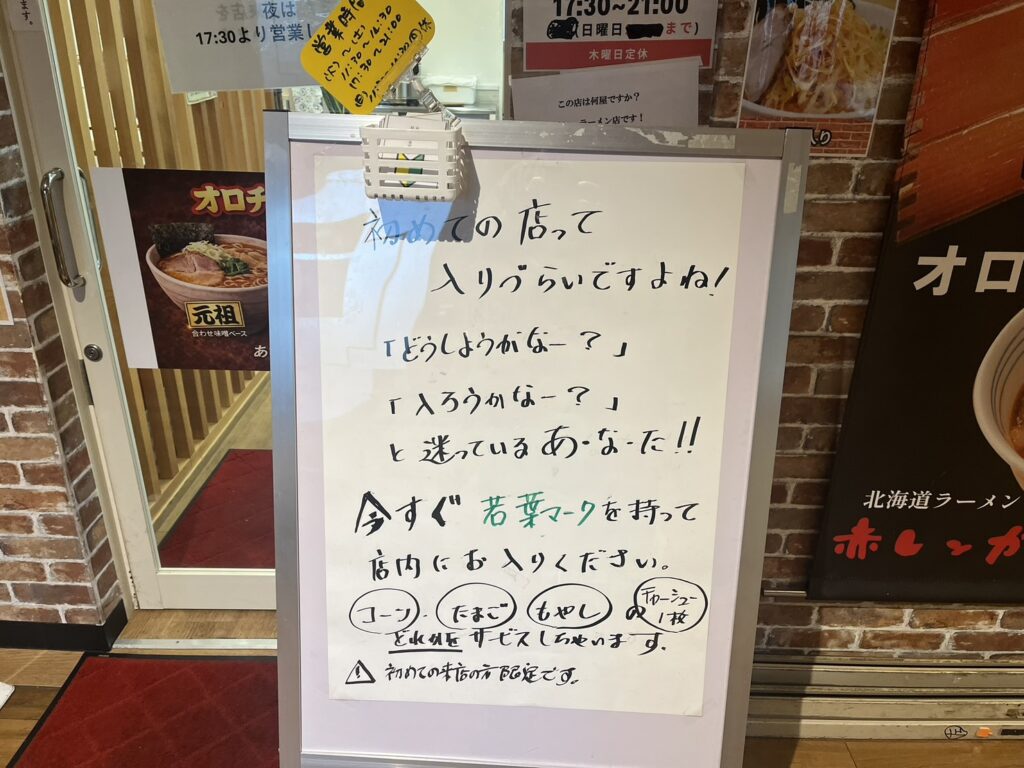 夜は
17:30より営業!
営業時間
(月)～(土)
11:30～14:30
17:30～21:00
17:30~21:00
(日曜日
まで)
木曜日定休
この店は何屋ですか?
ラーメン店です!
オロチ
元祖
合わせ味噌ベース
あ
初めての店って
入りづらいですよね!
「どうしようかなー?」
「入ろうかなー?」
と迷っているあ・な・た!!
今すぐ若葉マークを持って
店内にお入りください。
コーン・たまご もやし の チャーシュー1枚
どれかをサービスしちゃいます。
⚠ 初めての来店の方限定です。
オロ
北海道ラーメン
赤レンガ